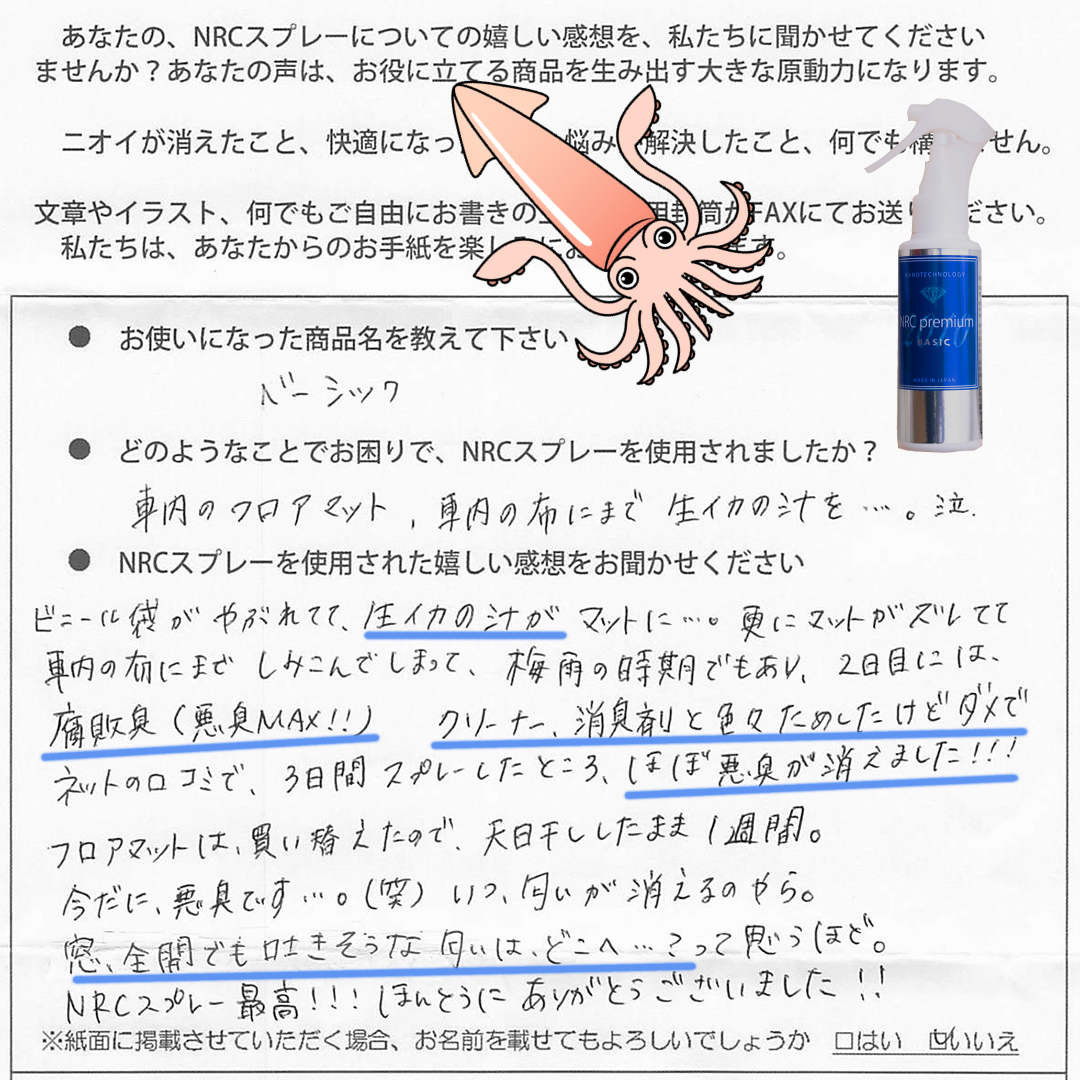 あなたの、NRCスプレーについての嬉しい感想を、私たちに聞かせてください
ませんか？あなたの声は、お役に立てる商品を生み出す大きな原動力になります。
ニオイが消えたこと、快適になっ 悩み 解決したこと、何でも構 せん。
文章やイラスト、何でもご自由にお書きの 用封筒かFAXにてお送り ださい。
私たちは、あなたからのお手紙を楽しみにお ます。
NANOTECHNOLOGY
NRC premium
BASIC
MADE IN JAPAN
● お使いになった商品名を教えて下さい
ベーシック
● どのようなことでお困りで、NRCスプレーを使用されましたか？
車内のフロアマット、車内の布にまで生イカの汁を…。泣.
● NRCスプレーを使用された嬉しい感想をお聞かせください
ビニール袋がやぶれてて、生イカの汁がマットに…。更にマットがズレてて
車内の布にまでしみこんでしまって、梅雨の時期でもあり、2日目には、
腐敗臭（悪臭MAX!!） クリーナー、消臭剤と色々ためしたけどダメで
ネットの口コミで、3日間スプレーしたところ、ほぼ悪臭が消えました!!!
フロアマットは、買い替えたので、天日干ししたまま1週間。
今だに、悪臭です…。（笑）いつ、匂いが消えるのやら。
窓、全開でも吐きそうな匂いは、どこへ…？って思うほど。
NRCスプレー最高!!! ほんとうにありがとうございました!!
※紙面に掲載させていただく場合、お名前を載せてもよろしいでしょうか □はい ☑いいえ